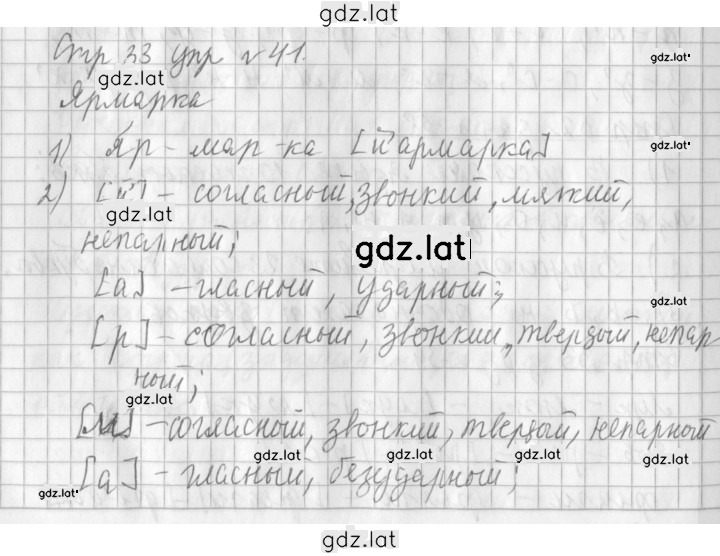 gdz.lat
Стр 33 упр № 41.
gdz.lat
gdz.lat
Ярмарка
1) Яр - мар - ка [й'армарка]
gdz.lat
2) [й'] - согласный, звонкий, мягкий,
gdz.lat
непарный;
gdz.lat
[а] - гласный, ударный;
gdz.lat
[р] - согласный, звонкий, твердый, непар
gdz.lat
ный;
gdz.lat
[м] - согласный, звонкий, твердый, непарный
gdz.lat gdz.lat gdz.lat
[а] - гласный, безударный;
gdz.lat
gdz.lat